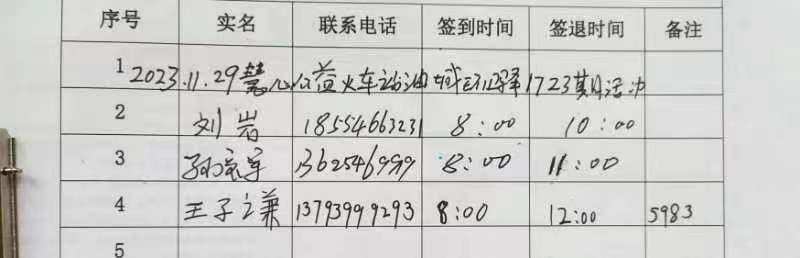 序号 实名 联系电话 签到时间 签退时间 备注
1 2023.11.29慧心公益火车站油城驿1723期活动
2 刘岩 18554663231 8:00 10:00
3 孙家军 13625469919 8:00 11:00
4 王子谦 13793999293 8:00 12:00 5983
5